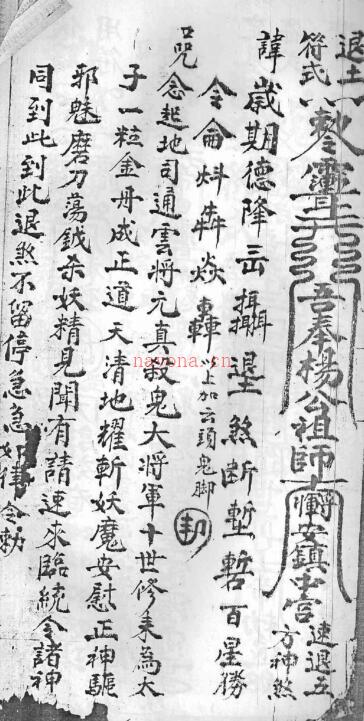 退土
符式
敕令
吾奉楊公祖師
安鎮中宮
速退五
方神煞
諱歲期德降云攝退煞斷
暫百星勝
令侖炓犇焱轟
以上加六頭鬼脚
口咒念起地司通雲將元真殺鬼大將軍十世修来為太
子一粒金丹成正道天清地耀斬妖魔安慰正神驅
邪魅磨刀蕩鉞杀妖精見聞有請速來臨統令諸神
同到此到此退煞不留停急急如律令勅
nayona.cn